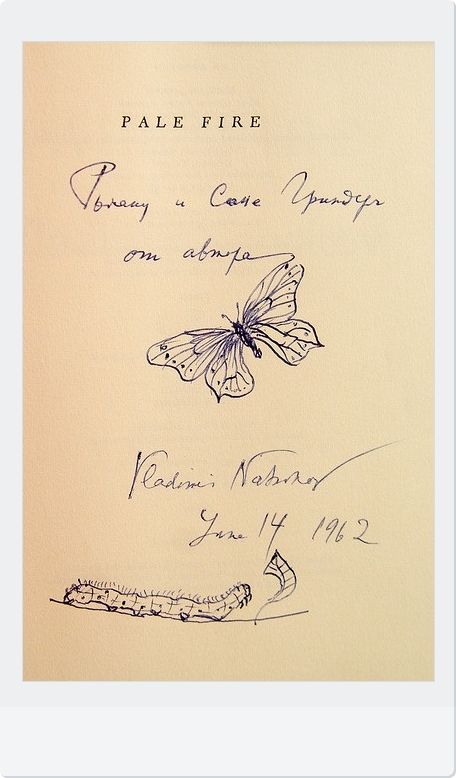 PALE FIRE
Роману и Соне Гринберг
от автора
Vladimir Nabokov
June 14 1962